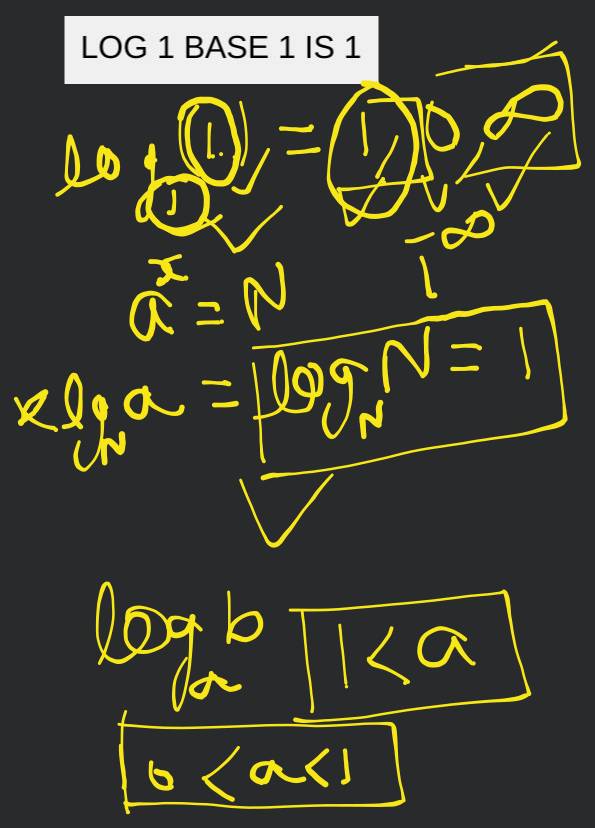 LOG 1 BASE 1 IS 1
log₁ 1 = 1, 0 ∞
1^-∞
aˣ = N
x log_N a = log_N N = 1
log_a b 1 < a
0 < a < 1